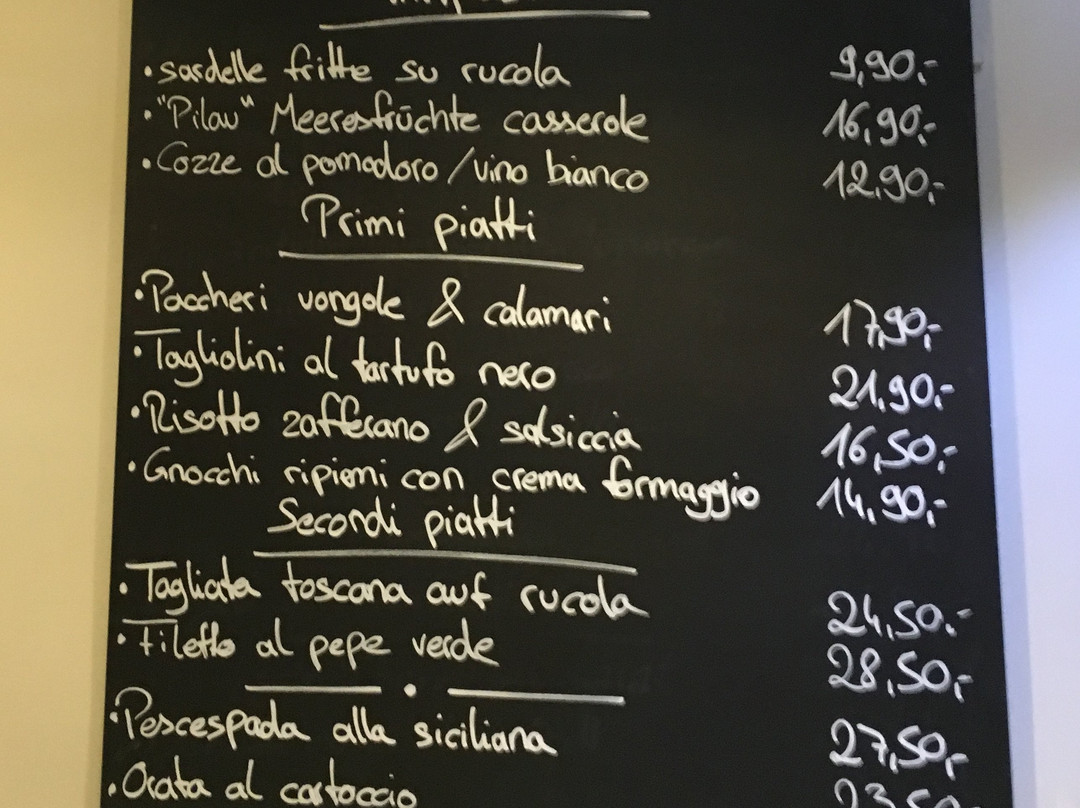 · sardelle fritte su rucola 9,90.-
· "Pilau" Meeresfrüchte casserole 16,90.-
· Cozze al pomodoro / vino bianco 12,90,-
Primi piatti
· Paccheri vongole & calamari 17,90,-
· Tagliolini al tartufo nero 21,90.-
· Risotto zafferano & salsiccia 16,50,-
· Gnocchi ripieni con crema formaggio 14,90,-
Secondi piatti
· Tagliata toscana auf rucola 24,50.-
· Filetto al pepe verde 28,50,-
· Pescespada alla siciliana 27,50,-
· Orata al cartoccio